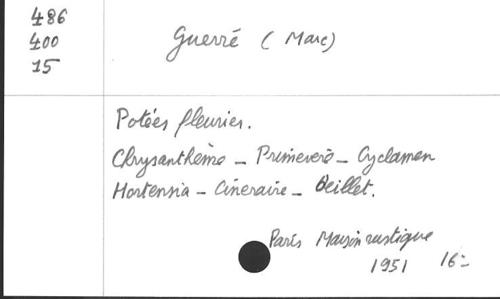 486
400
15
Guerré ( Marc)
Potées fleuries.
Chrysanthème - Primevère - Cyclamen
Hortensia - Cinéraire - Oeillet.
Paris Maison rustique
1951 16=